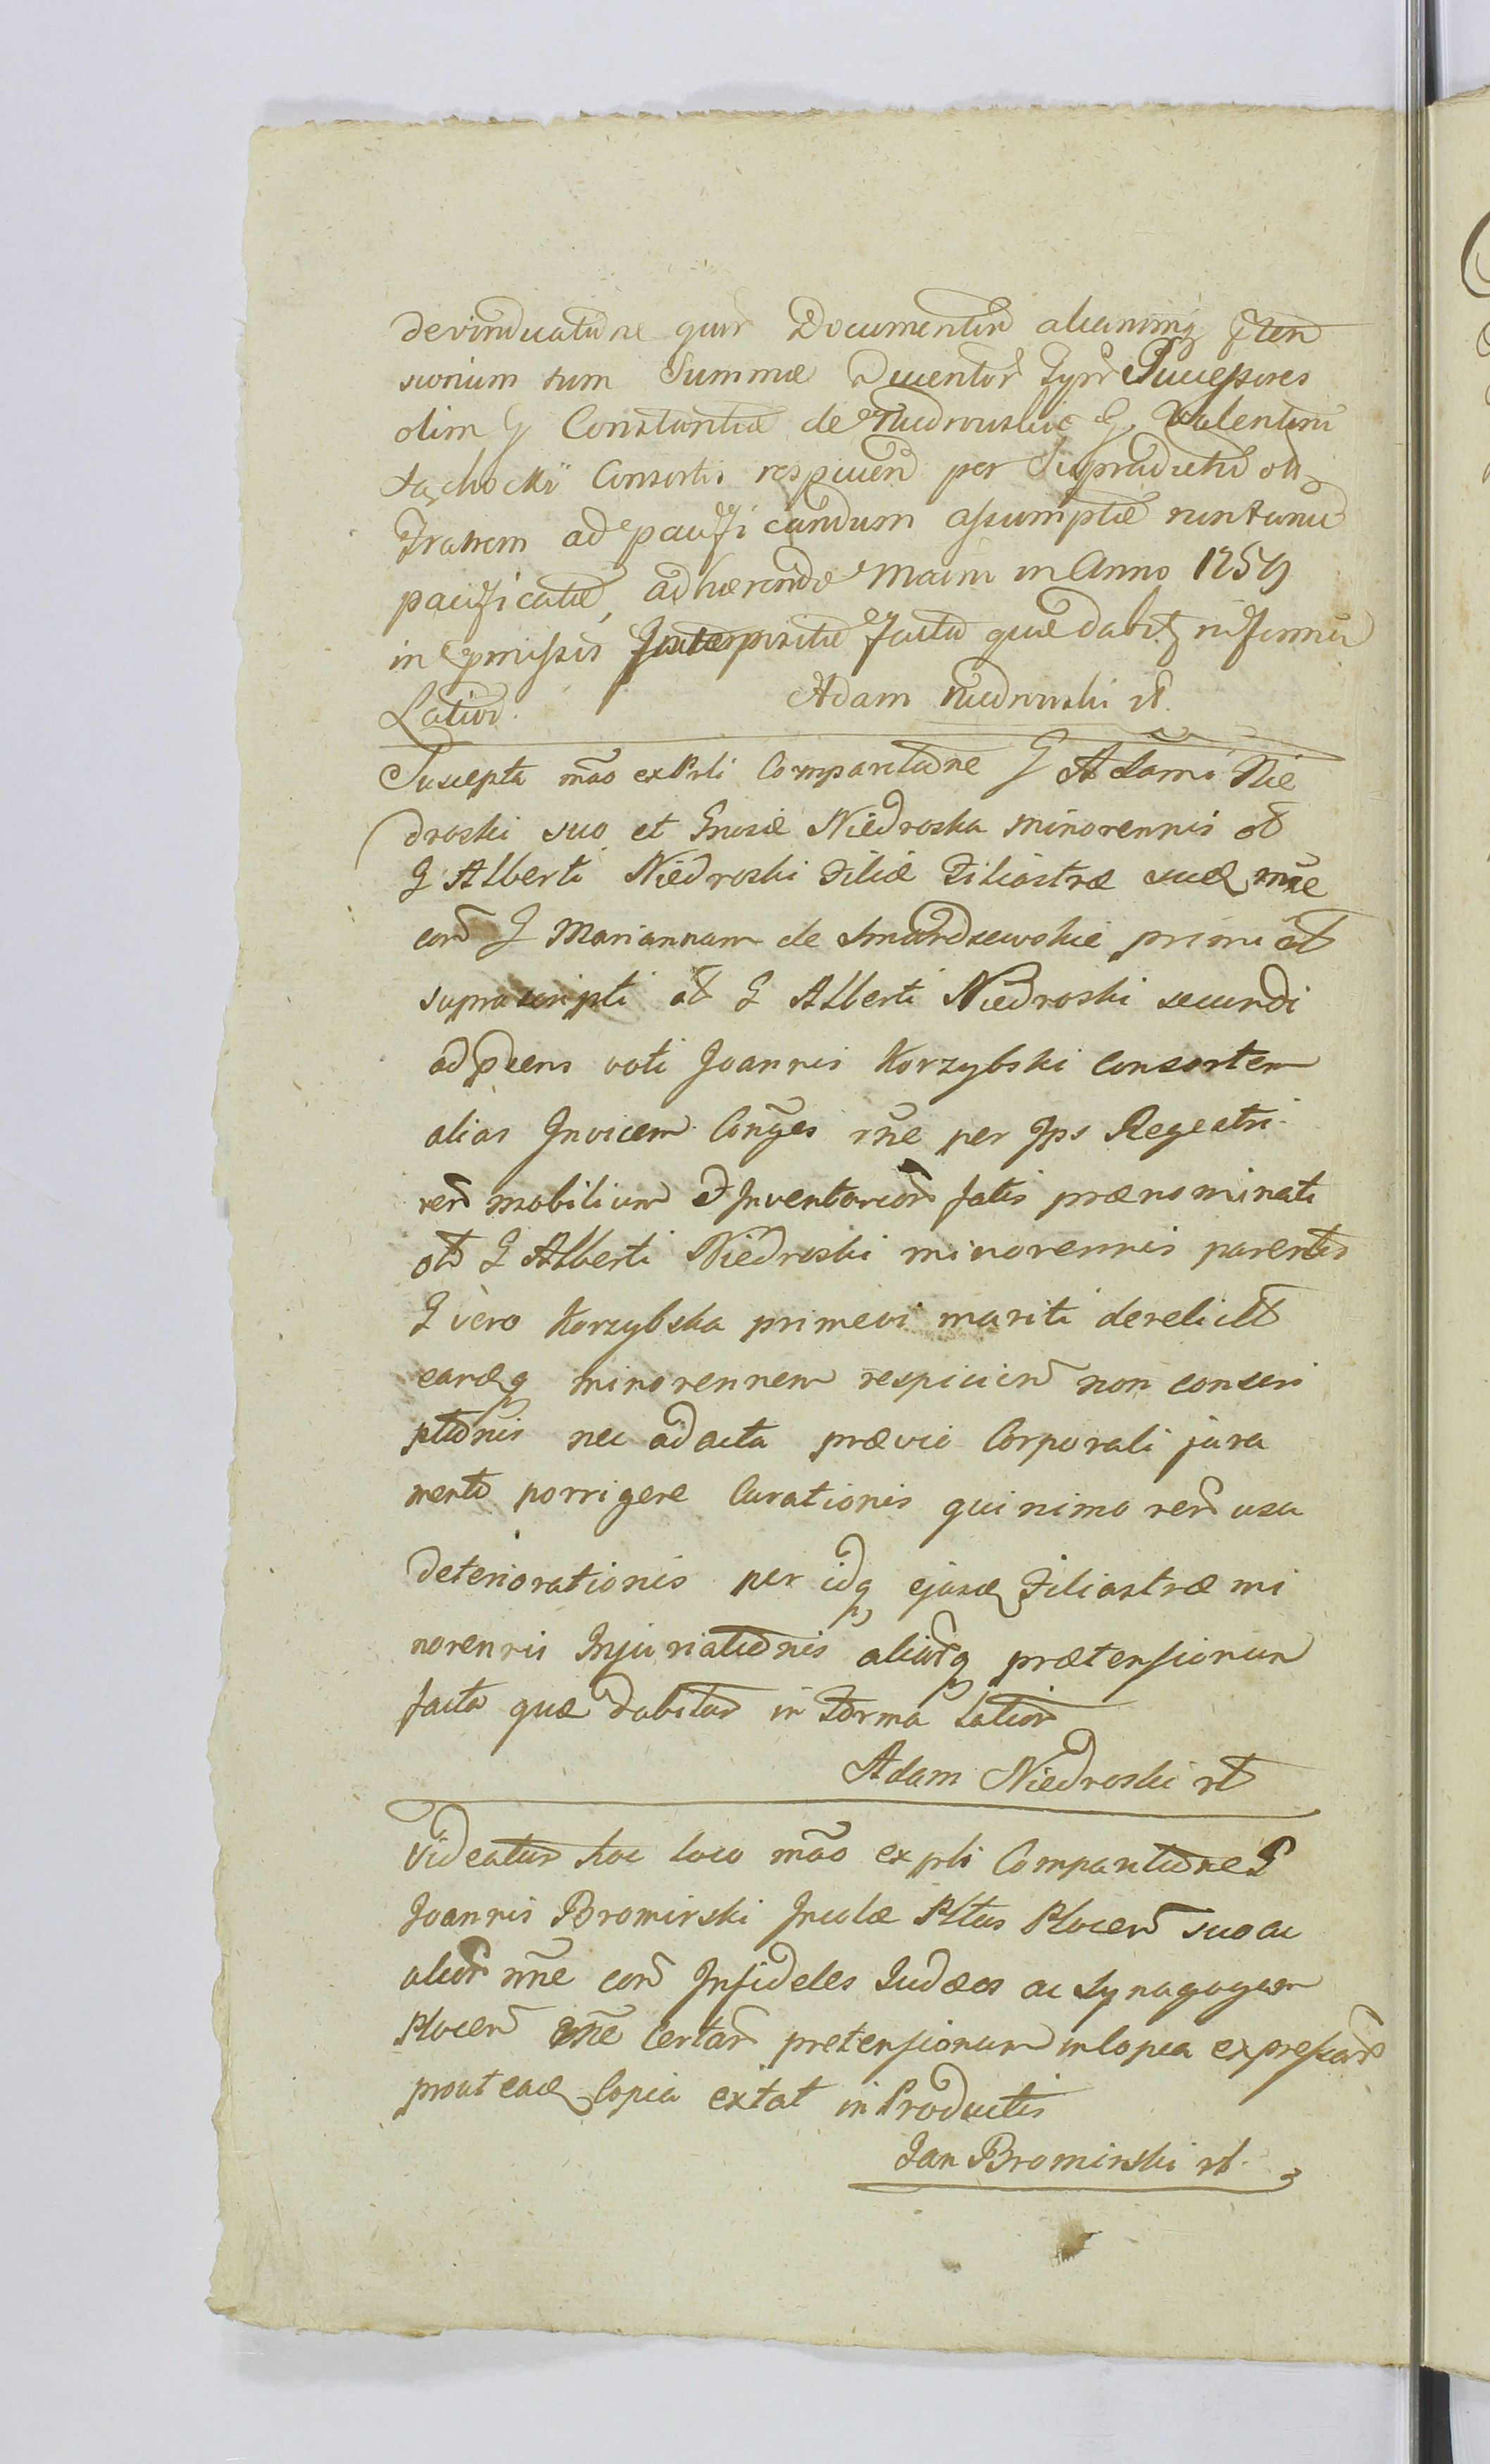 devinducatione quar Documentor aliarumq; prten
sionum tum Summæ Ducentor Tynf Successores
olim G Constantiæ de Niedrowskie G Valentini
Łachocki Consortis respicien per Supradictu olt
Fratrem ad pacificandum assumptæ nontamen
pacificatæ, adhærendo Manifni in Anno 1759
in præmissis Interpositæ facta quæ dabitq in forma
Latiori. Adam Niedrowski rl.
Suscepta mão ex Prli Comparitione G Adami Nie
droski suo et Gnosæ Niedroska minorennis olt
G Alberti Niedroski Filiæ Filiastræ suæ nñe
corã G Mariannam de Smardzewskie primi olt
suprascripti olt G Alberti Niedroski secundi
ad præns voti Joannis Korzybski Consortem
alias Invicem Conges rñe per Ips Regestri
rerũ mobilium et Inventarior fatis prænominati
olt G Alberti Niedroski minorennis parentis
G vero Korzybska primevi mariti derelict
eandq minorennem respicien non conscri
ptionis nec ad acta prævio Corporali jura
mento porrigere Curationis quinimo rerũ usu
deteriorationis per idq ejusd Filiastræ mi
norennis Injuriationis aliarq prætensionum
facta quæ dabitur in Forma Latiori
Adam Niedroski rt
Videatur hoc loco mão ex prli Comparitione G
Joannis Bromirski Incolæ Pltus Plocen suo ac
alior nñe corã Infideles Judæos ac Synagogam
Plocen rñe Certar pretensionum in Copia expressar
prout ead Copia extat in Productis
Jan Bromirski rt.